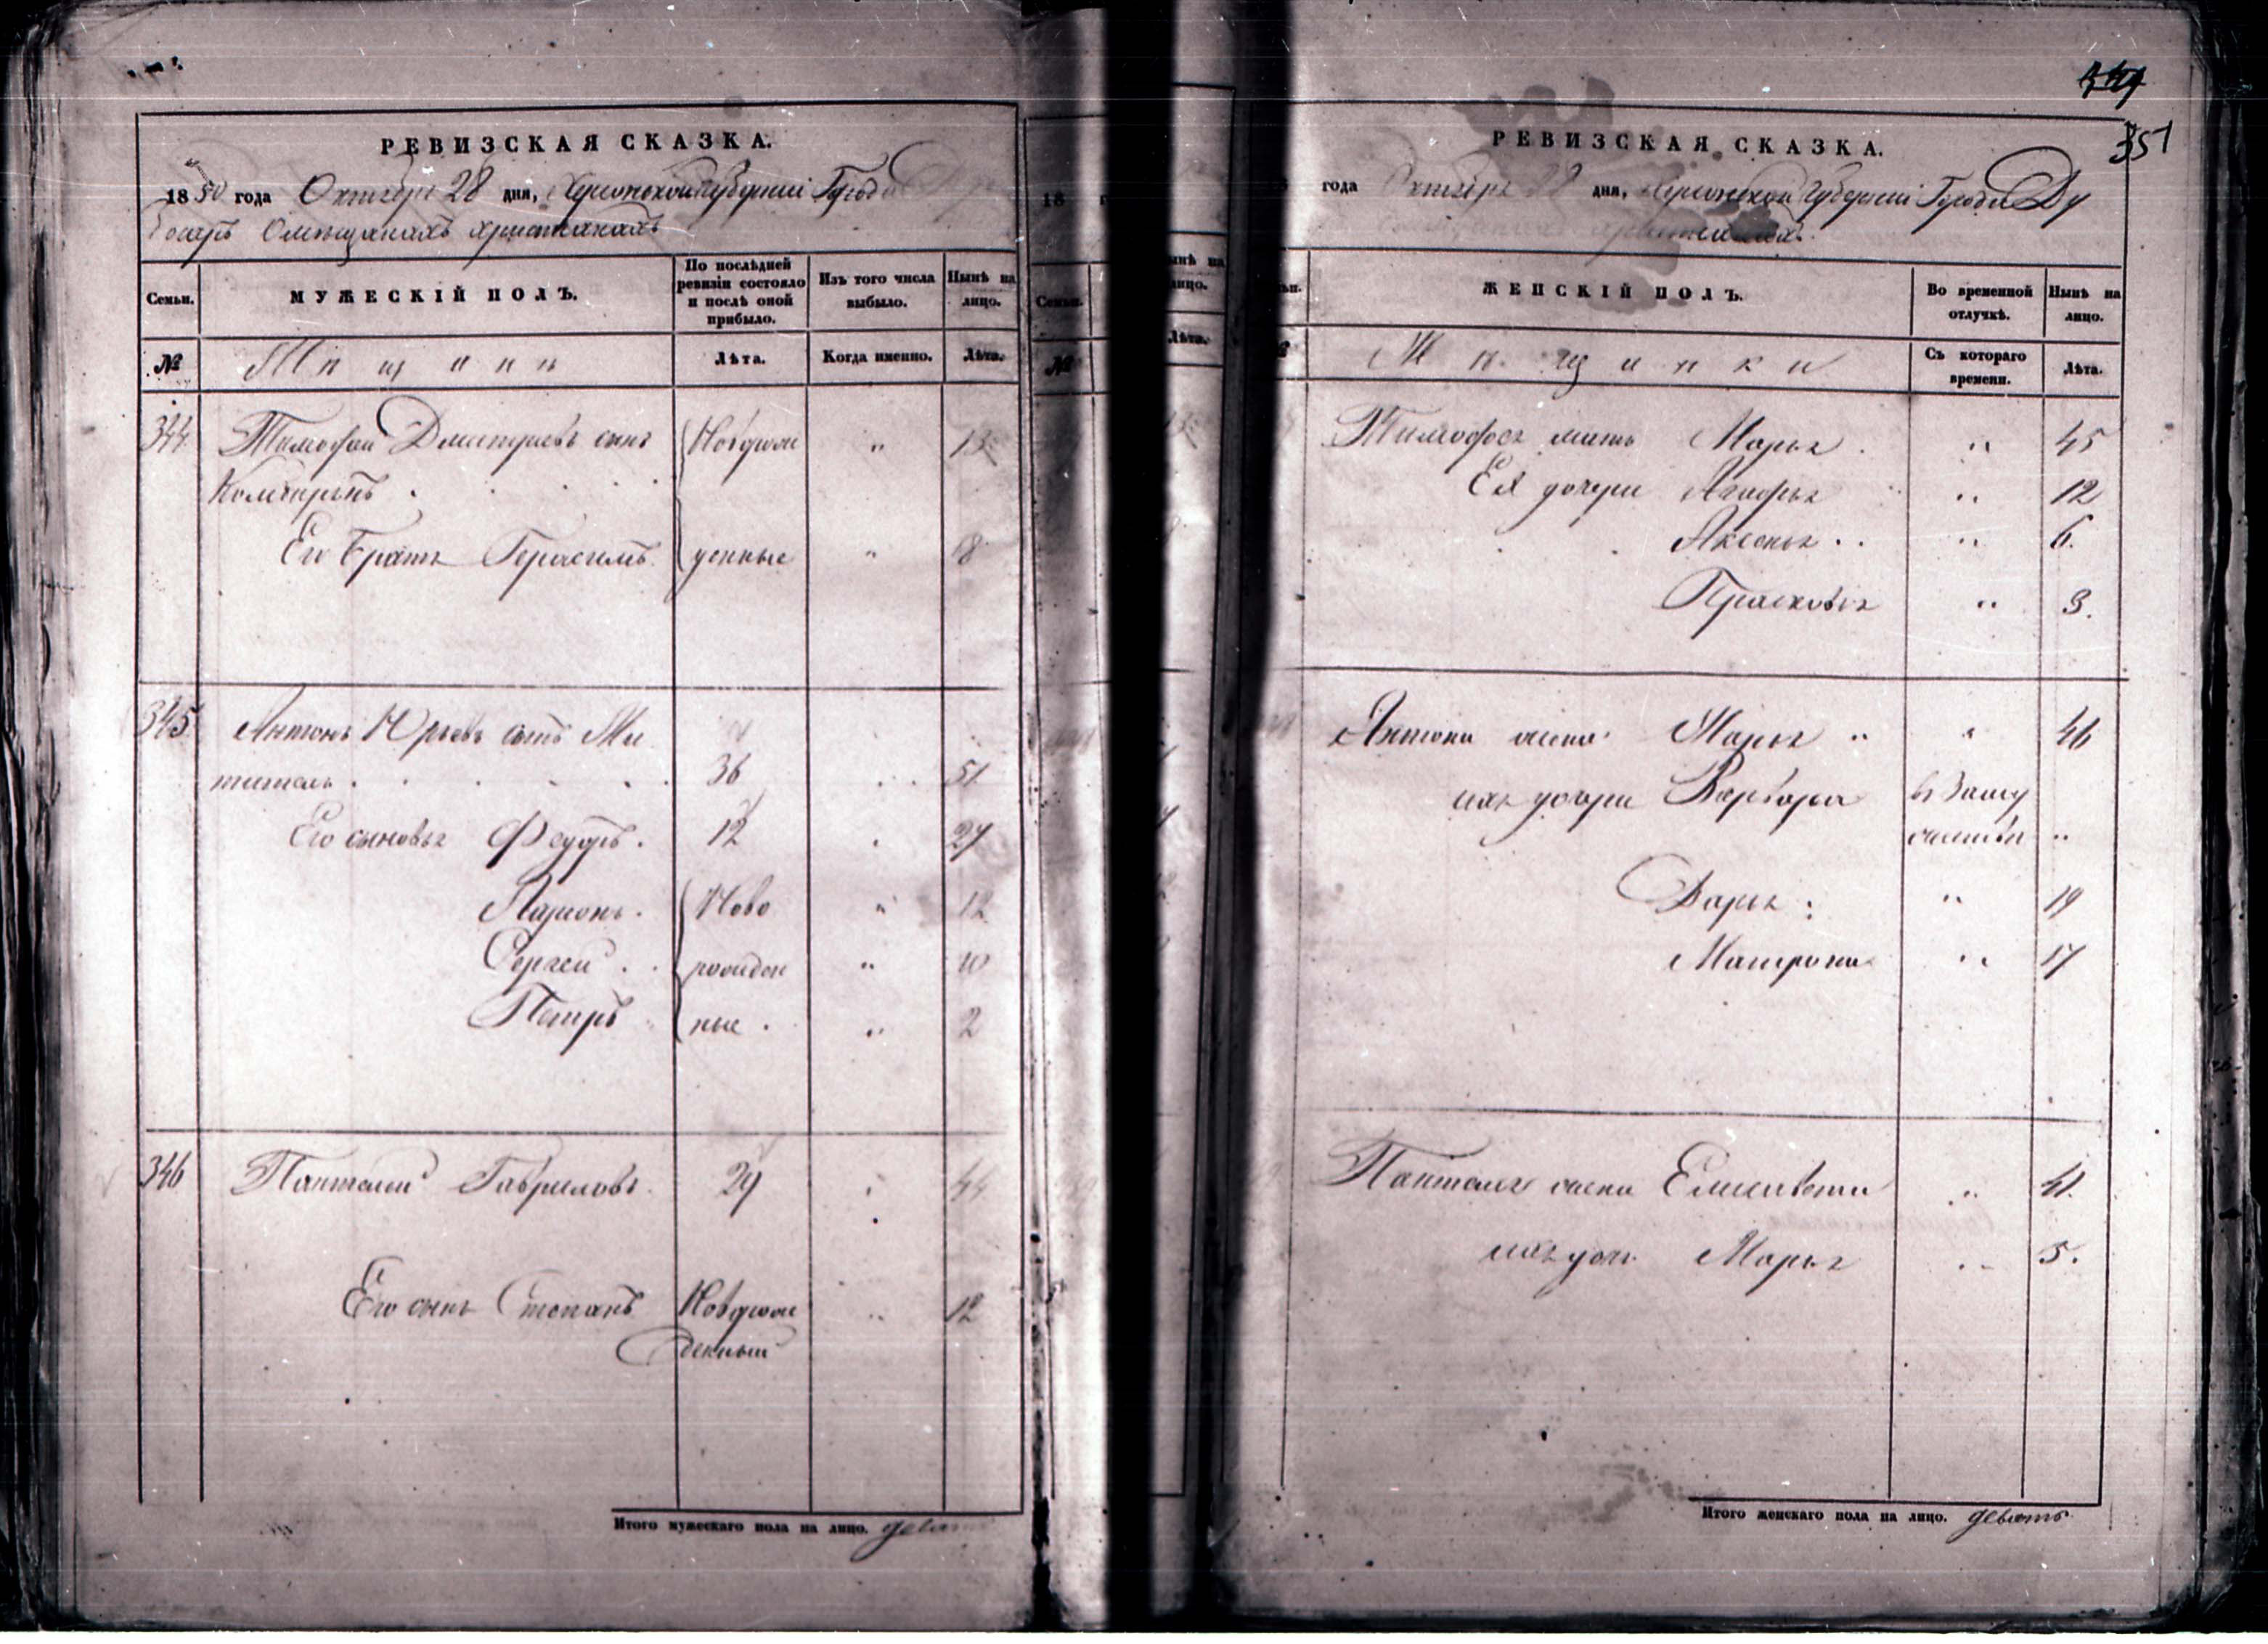 РЕВИЗСКАЯ СКАЗКА.
1850 года Октября 28 дня, Херсонской Губернiи Города
боссаръ О мѣщанахъ христiанахъ
Семьи.
МУЖЕСКIЙ ПОЛЪ.
По послѣдней ревизiи состояло и послѣ оной прибыло.
Изъ того числа выбыло.
Нынѣ на лицо.
№
Мѣщане
Лѣта.
Когда именно.
Лѣта.
344 Тимофей Дмитрiевъ сынъ Новорож 13
Его братъ Герасимъ денные 8
345 Антонъ Юрьевъ сынъ Ми
титель 36 51
Его сыновья Федоръ 12 27
Ларiонъ Ново 12
Сергей рожден 10
Петръ ные 2
346 Пантелей Гавриловъ 29 44
Его сынъ Степанъ Новорож 12
денный
Итого мужескаго пола на лицо. девять
18
Семьи.
№
ынѣ на
лицо.
Лѣта.
349
351
РЕВИЗСКАЯ СКАЗКА.
года Октября 28 дня, Херсонской Губернiи Города Ду
христiанахъ
ЖЕНСКIЙ ПОЛЪ.
Во временной отлучкѣ.
Нынѣ на лицо.
Мѣщанки
Съ котораго времени.
Лѣта.
Тимофея мать Марья 45
Ея дочери Агафья 12
Аксенья 6.
Прасковья 3.
Антона жена Марья 46
ихъ дочери Варвара въ Заму
жествѣ
Дарья 19
Матрона 17
Пантелея жена Елисавета 41.
ихъ дочь Марья 5.
Итого женскаго пола на лицо. девять